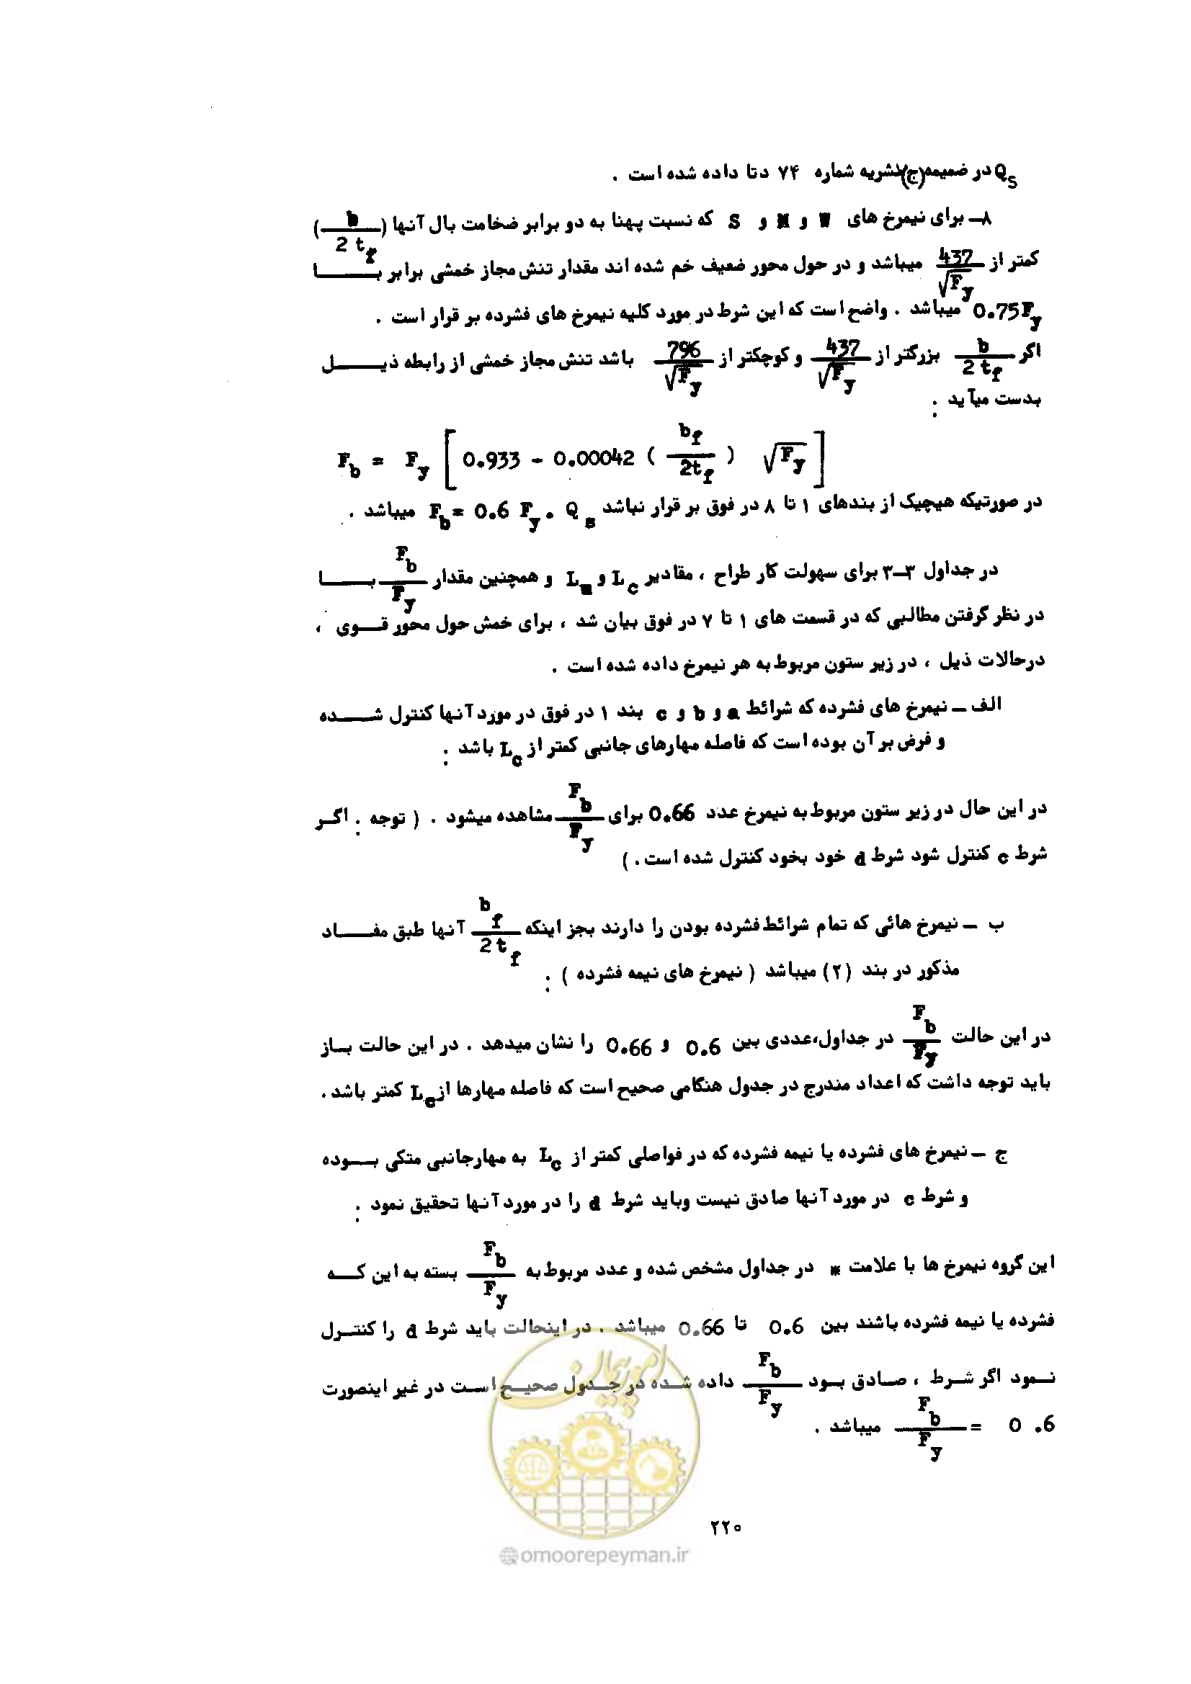 Qs در ضمیمه (ج) نشریه شماره ۷۴ دتا داده شده است .
۸ــ برای نیمرخ های W و M و S که نسبت پهنا به دو برابر ضخامت بال آنها (b / 2 t_f)
کمتر از 437/√F_y میباشد و در حول محور ضعیف خم شده اند مقدار تنش مجاز خمشی برابر بــــــا
0.75F_y میباشد . واضح است که این شرط در مورد کلیه نیمرخ های فشرده بر قرار است .
اگر b / 2 t_f بزرگتر از 437/√F_y و کوچکتر از 796/√F_y باشد تنش مجاز خمشی از رابطه ذیـــــــل
بدست میآید :
F_b = F_y [ 0.933 - 0.00042 ( b_f / 2t_f ) √F_y ]
در صورتیکه هیچیک از بندهای ۱ تا ۸ در فوق بر قرار نباشد F_b = 0.6 F_y . Q_s میباشد .
در جداول ۳ــ۳ برای سهولت کار طراح ، مقادیر L_c و L_u و همچنین مقدار F_b / F_y بــــــا
در نظر گرفتن مطالبی که در قسمت های ۱ تا ۷ در فوق بیان شد ، برای خمش حول محور قـــوی ،
درحالات ذیل ، در زیر ستون مربوط به هر نیمرخ داده شده است .
الف ــ نیمرخ های فشرده که شرائط a و b و c بند ۱ در فوق در مورد آنها کنترل شـــــده
و فرض بر آن بوده است که فاصله مهارهای جانبی کمتر از L_c باشد :
در این حال در زیر ستون مربوط به نیمرخ عدد 0.66 برای F_b / F_y مشاهده میشود . ( توجه : اگــر
شرط c کنترل شود شرط d خود بخود کنترل شده است . )
ب ــ نیمرخ هائی که تمام شرائط فشرده بودن را دارند بجز اینکه b_f / 2 t_f آنها طبق مفـــــاد
مذکور در بند (۲) میباشد ( نیمرخ های نیمه فشرده ) :
در این حالت F_b / F_y در جداول، عددی بین 0.6 و 0.66 را نشان میدهد . در این حالت بــاز
باید توجه داشت که اعداد مندرج در جدول هنگامی صحیح است که فاصله مهارها از L_c کمتر باشد .
ج ــ نیمرخ های فشرده یا نیمه فشرده که در فواصلی کمتر از L_c به مهارجانبی متکی بـــوده
و شرط c در مورد آنها صادق نیست وباید شرط d را در مورد آنها تحقیق نمود :
این گروه نیمرخ ها با علامت * در جداول مشخص شده و عدد مربوط به F_b / F_y بسته به این کـــه
فشرده یا نیمه فشرده باشند بین 0.6 تا 0.66 میباشد . در اینحالت باید شرط d را کنتــرل
نــمود اگر شـرط ، صــادق بــود F_b / F_y داده شــده در جــدول صحیــح اســت در غیر اینصورت
F_b / F_y = 0.6 میباشد .
امور پیمان
۲۲۰
@omoorepeyman.ir